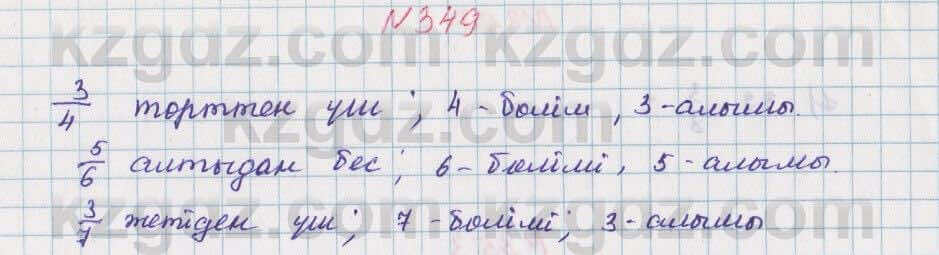 №349
3/4 төрттен үш; 4-бөлім, 3-алымы.
5/6 алтыдан бес; 6-бөлімі, 5-алымы.
3/7 жетіден үш; 7-бөлімі; 3-алымы
kzgdz.com kzgdz.com